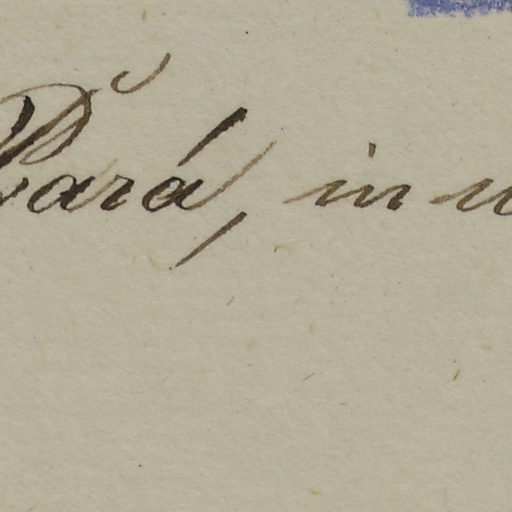 Pará, in